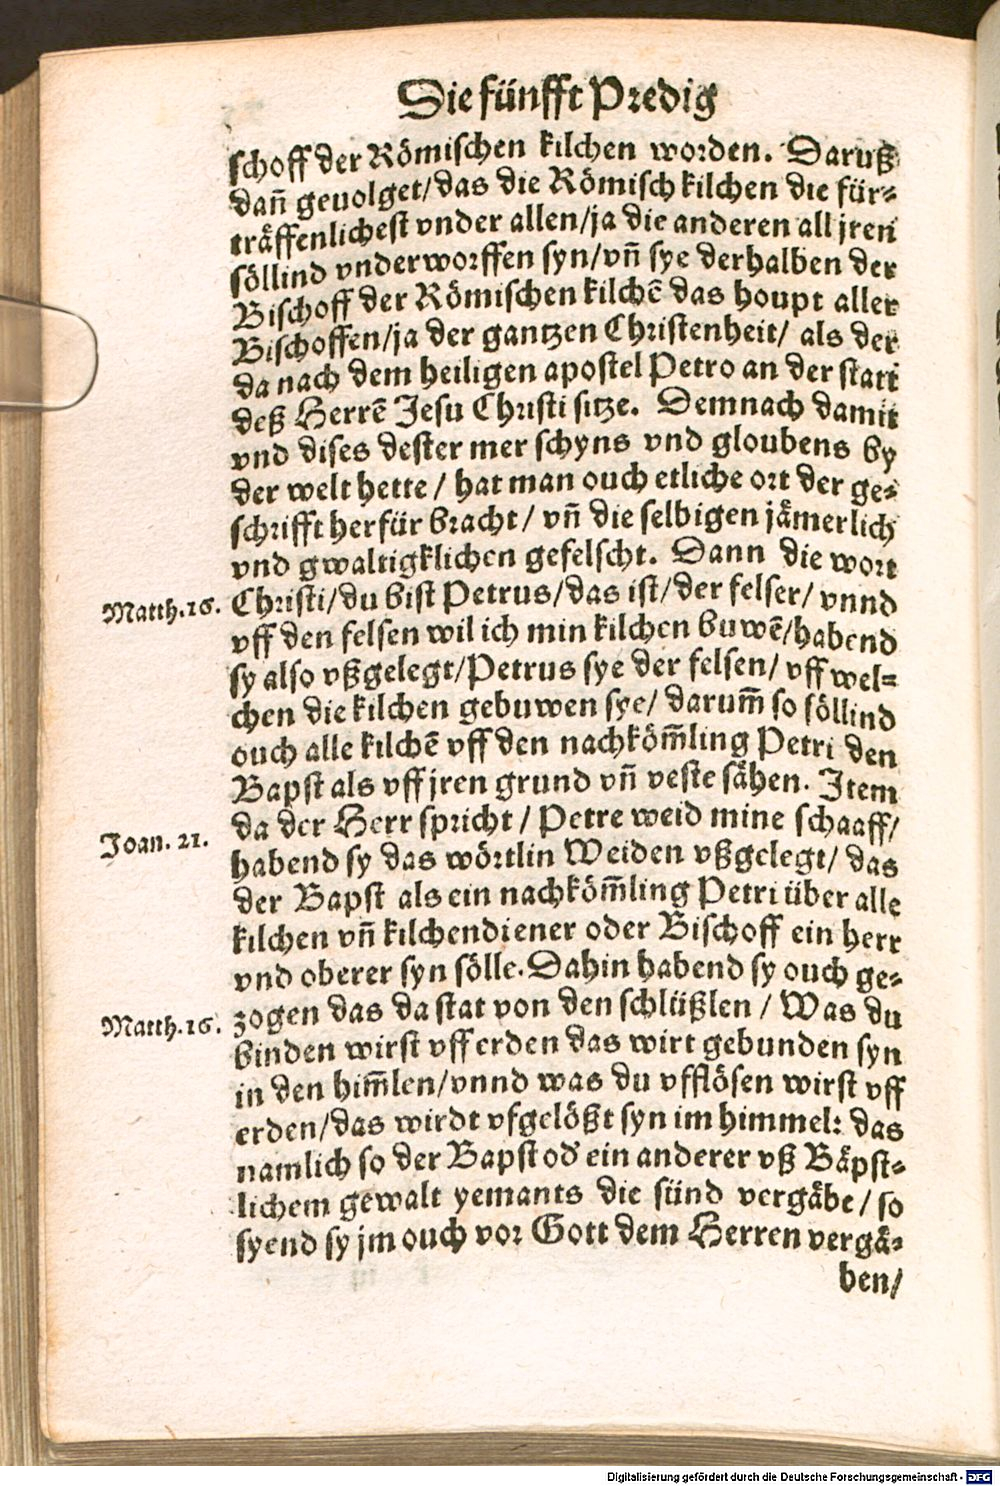 Die fünfft Predig
schoff der Römischen kilchen worden. Daruß
dañ geuolget/das die Römisch kilchen die für-
träffenlichest vnder allen/ja die anderen all jren
söllind vnderworffen syn/vñ sye derhalben der
Bischoff der Römischen kilchē das houpt aller
Bischoffen/ja der gantzen Christenheit/ als der
da nach dem heiligen apostel Petro an der statt
deß Herrē Jesu Christi sitze. Demnach damit
vnd dises dester mer schyns vnd gloubens by
der welt hette / hat man ouch etliche ort der ge-
schrifft herfür bracht / vñ die selbigen jämerlich
vnd gwaltigklichen gefelscht. Dann die wort
Matth.16. Christi/du bist Petrus/das ist/der felser/ vnnd
vff den felsen wil ich min kilchen buwē/habend
sy also vßgelegt/Petrus sye der felsen/ vff wel-
chen die kilchen gebuwen sye/ darum̄ so söllind
ouch alle kilchē vff den nachköm̄ling Petri den
Bapst als vff jren grund vñ veste sähen. Item
Joan. 21. da der Herr spricht / Petre weid mine schaaff/
habend sy das wörtlin Weiden vßgelegt/ das
der Bapst als ein nachköm̄ling Petri über alle
kilchen vñ kilchendiener oder Bischoff ein herr
vnd oberer syn sölle. Dahin habend sy ouch ge-
Matth.16. zogen das da stat von den schlüßlen / Was du
binden wirst vff erden das wirt gebunden syn
in den him̄len/vnnd was du vfflösen wirst vff
erden/das wirdt vfgelößt syn im himmel: das
namlich so der Bapst od' ein anderer vß Bäpst-
lichem gewalt yemants die sünd vergäbe / so
syend sy jm ouch vor Gott dem Herren vergä-
ben/
Digitalisierung gefördert durch die Deutsche Forschungsgemeinschaft - DFG